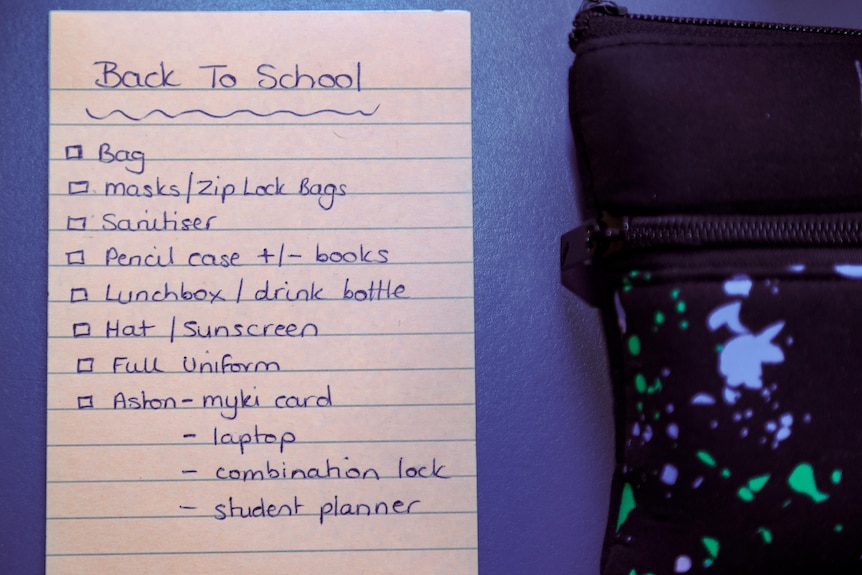 Back To School
Bag
masks/Zip Lock Bags
Sanitiser
Pencil case +/- books
Lunchbox / drink bottle
Hat / Sunscreen
Full Uniform
Aston - myki card
- laptop
- combination lock
- student planner